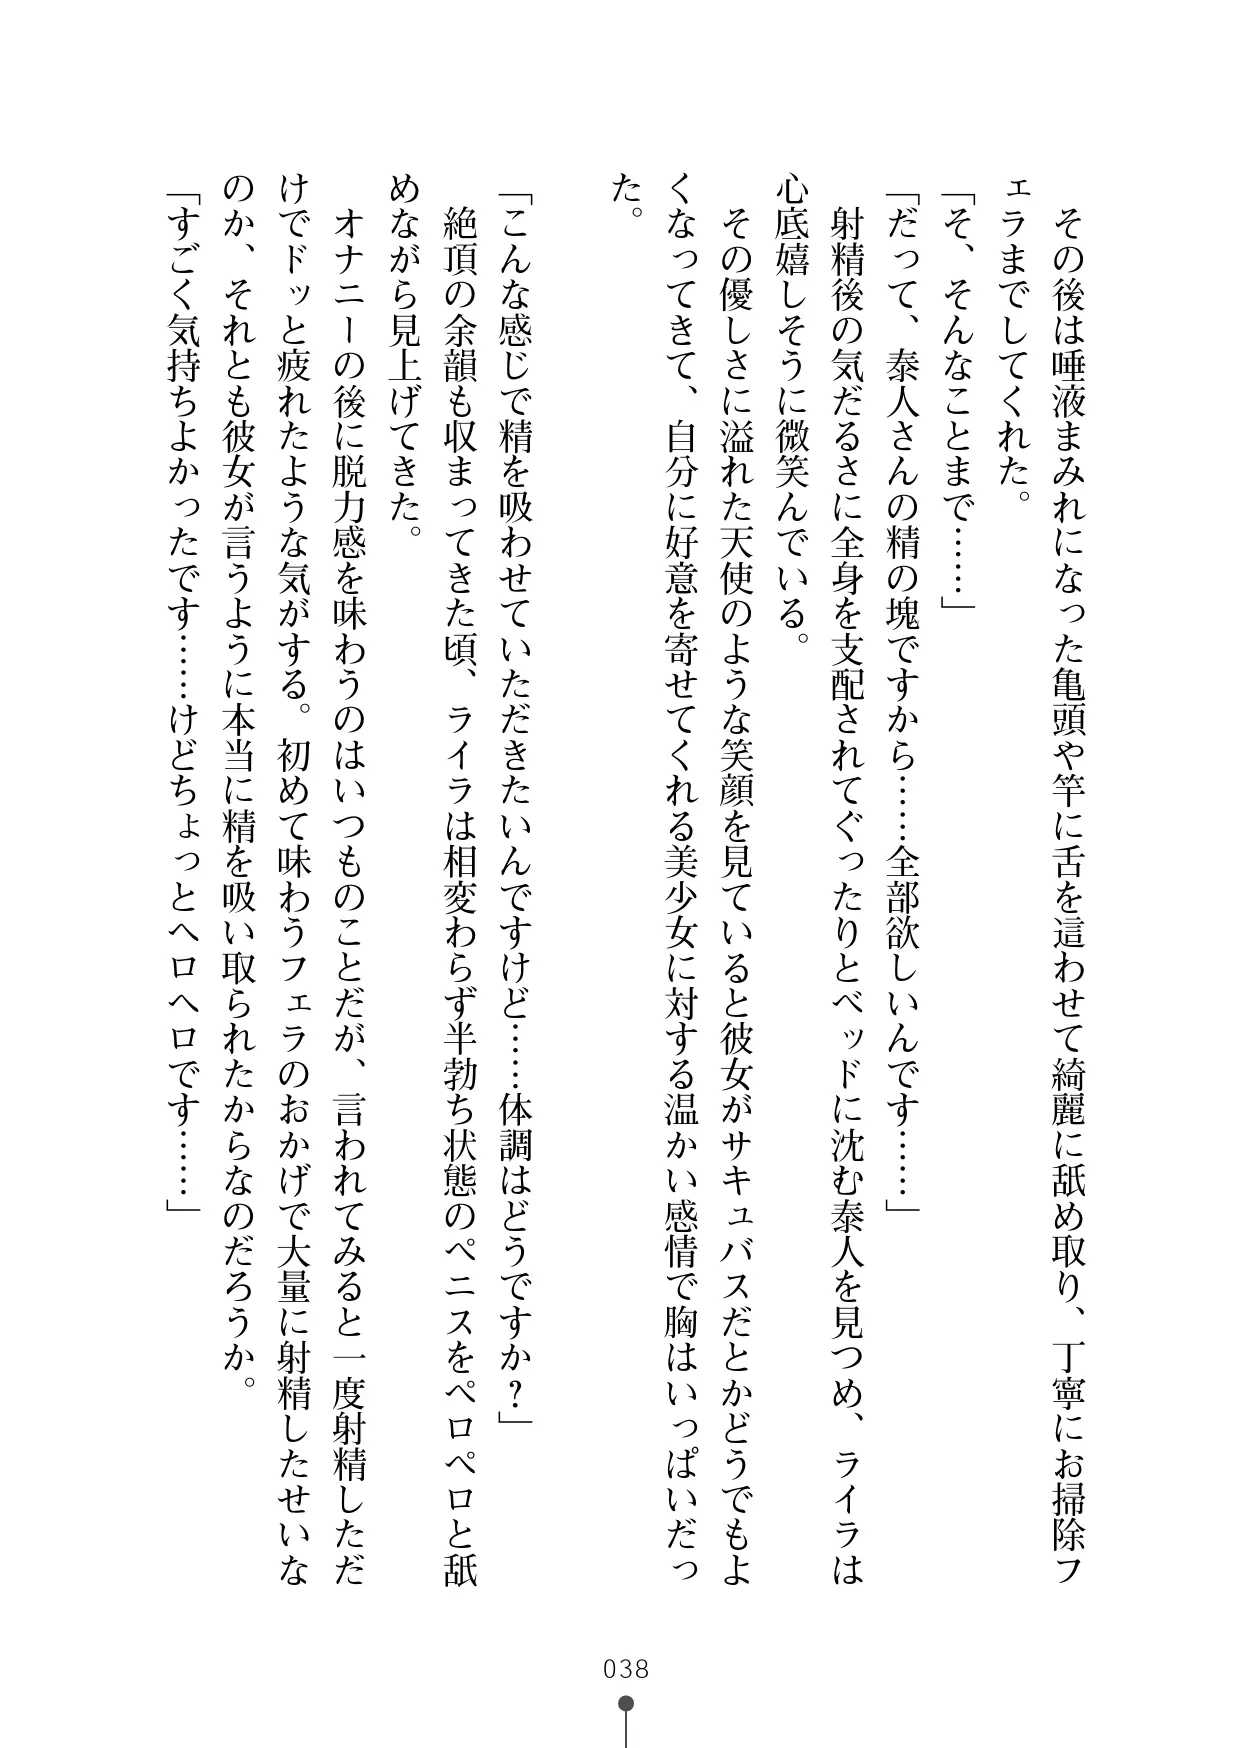 その後は唾液まみれになった亀頭や竿に舌を這わせて綺麗に舐め取り、丁寧にお掃除フ
ェラまでしてくれた。
「そ、そんなことまで……」
「だって、泰人さんの精の塊ですから……全部欲しいんです……」
射精後の気だるさに全身を支配されてぐったりとベッドに沈む泰人を見つめ、ライラは
心底嬉しそうに微笑んでいる。
その優しさに溢れた天使のような笑顔を見ていると彼女がサキュバスだとかどうでもよ
くなってきて、自分に好意を寄せてくれる美少女に対する温かい感情で胸はいっぱいだっ
た。
「こんな感じで精を吸わせていただきたいんですけど……体調はどうですか？」
絶頂の余韻も収まってきた頃、ライラは相変わらず半勃ち状態のペニスをペロペロと舐
めながら見上げてきた。
オナニーの後に脱力感を味わうのはいつものことだが、言われてみると一度射精しただ
けでドッと疲れたような気がする。初めて味わうフェラのおかげで大量に射精したせいな
のか、それとも彼女が言うように本当に精を吸い取られたからなのだろうか。
「すごく気持ちよかったです……けどちょっとヘロヘロです……」
038